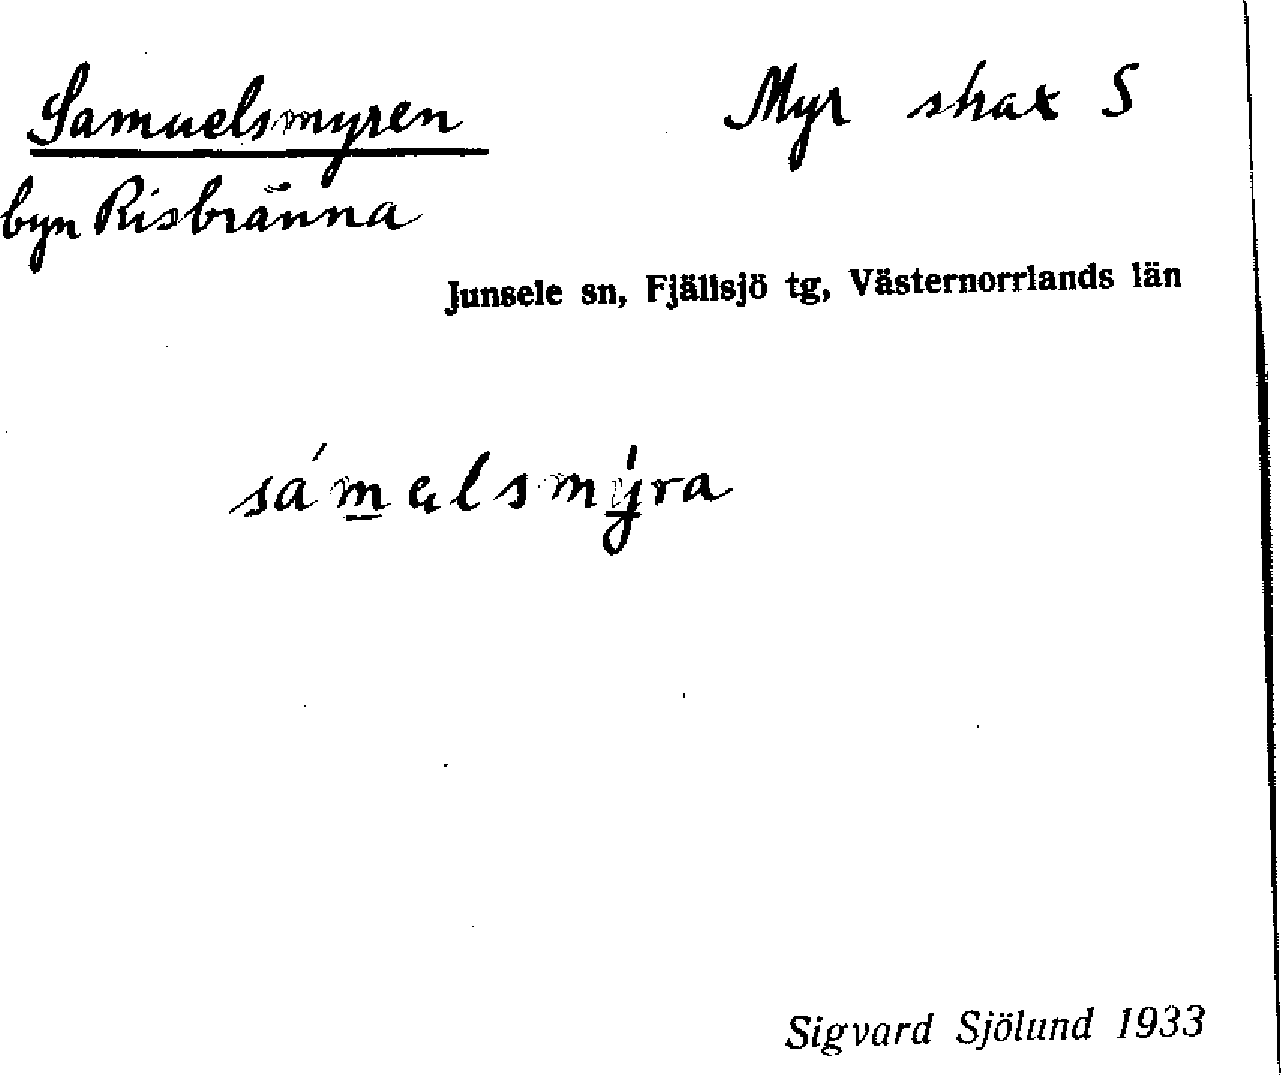 Samuelsmyren
Myr strax S
byn Risbränna
Junsele sn, Fjällsjö tg, Västernorrlands län
sámelsmýra
Sigvard Sjölund 1933